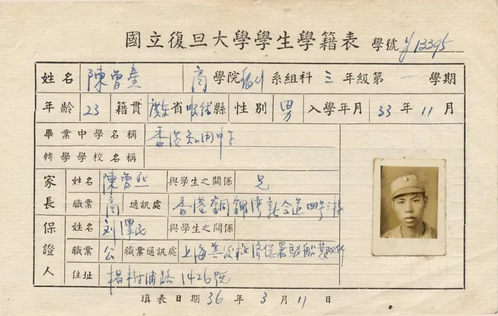 國立復旦大學學生學籍表 學號 13395
姓名 陳曾 商學院 銀行系組科 三年級第一學期
年齡 23 籍貫 廣東省 縣 性別 男 入學年月 33年11月
畢業中學名稱 香港
轉學學校名稱
家長 姓名 陳曾熙 與學生之關係 兄
職業 商 通訊處 香港銅鑼灣
保證人 姓名 刘 與學生之關係
職業 公 職業通訊處 上海
住址 楊樹浦路1426號
填表日期 36年3月11日